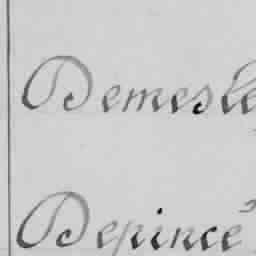 Demesle
Depincé